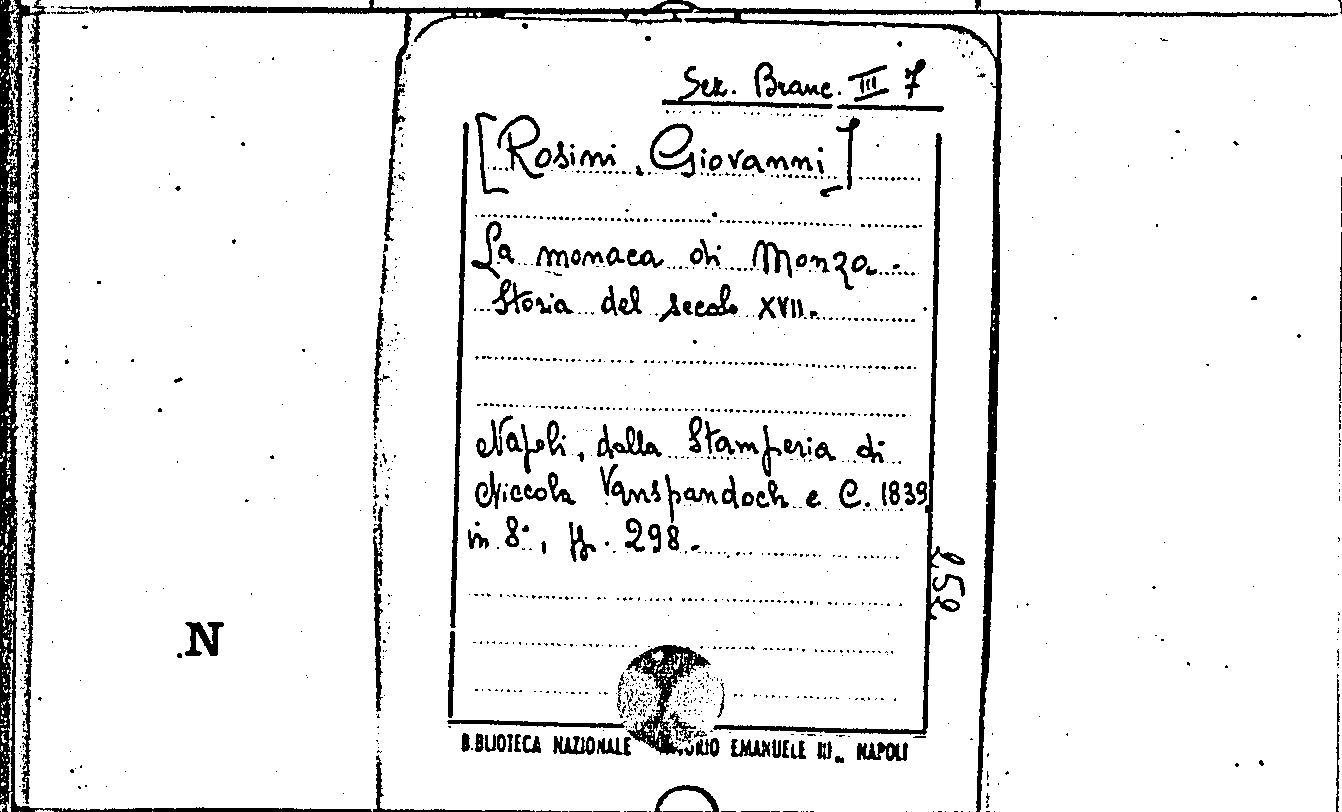 Sez. Branc. III 7
[Rosini, Giovanni]
La monaca di Monza.
Storia del secolo XVII.
Napoli, dalla Stamperia di
Niccola Vanspandoch e C. 1839
in 8°, pp. 298.
252
N
B.BLIOTECA NAZIONALE ORIO EMANUELE III„ NAPOLI